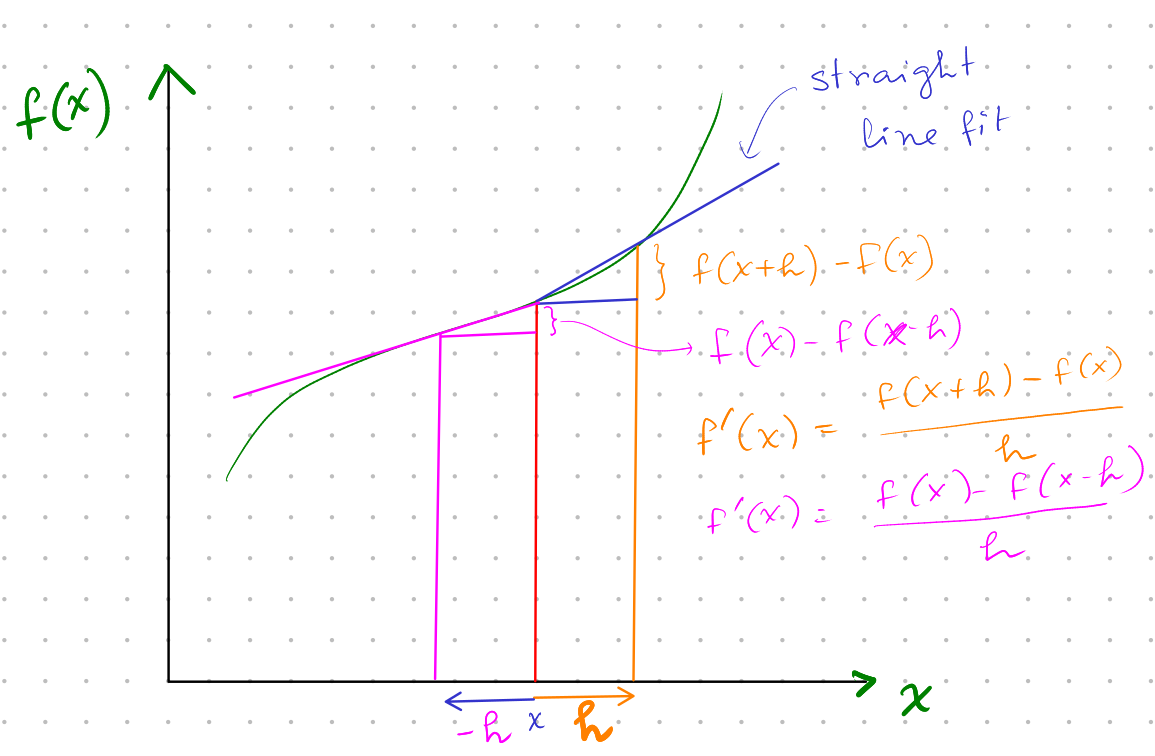 f(x)
straight
line fit
f(x+h) - f(x)
f(x) - f(x-h)
f'(x) = f(x+h) - f(x) / h
f'(x) = f(x) - f(x-h) / h
-h x h
x